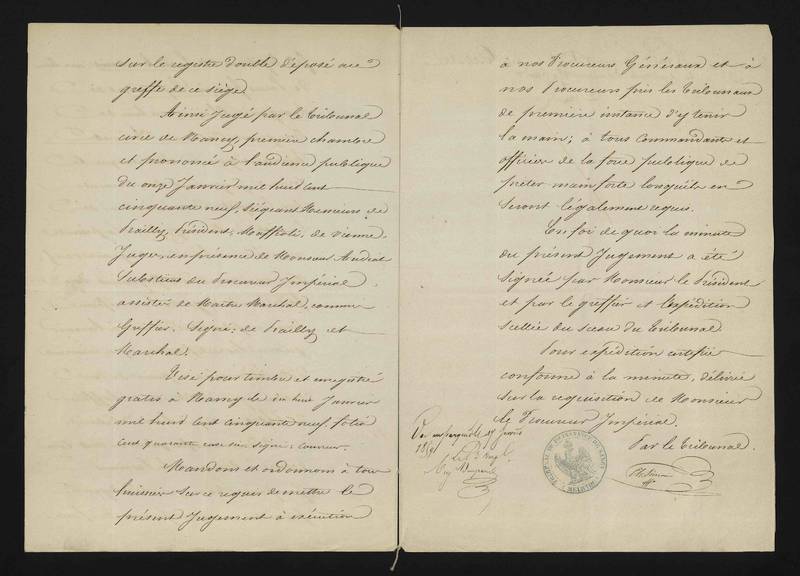 sur le registre double déposé au
greffe de ce siège.
Ainsi Jugé par le Tribunal
civil de Nancy, première chambre
et prononcé à l'audience publique
du onze Janvier mil huit cent
cinquante neuf, siégeant Messieurs de
Président; de Vienne,
Juges, en présence de Monsieur
Substitut du Procureur Impérial,
assistés de Maître Marchal, commis
Greffier. Signé: de et
Marchal.
Visé pour timbre et enregistré
gratis à Nancy le dix huit Janvier
mil huit cent cinquante neuf, folio
cent quarante case six signé:
Mandons et ordonnons à tous
huissiers sur ce requis de mettre le
présent Jugement à exécution
à nos Procureurs Généraux et à
nos Procureurs près les Tribunaux
de première instance d'y tenir
la main; à tous commandants et
officiers de la force publique de
prêter main forte lorsqu'ils en
seront légalement requis.
En foi de quoi la minute
du présent Jugement a été
signée par Monsieur le Président
et par le greffier et l'expédition
scellée du sceau du Tribunal.
Pour expédition certifiée
conforme à la minute, délivrée
sur la réquisition de Monsieur
le Procureur Impérial.
Par le Tribunal.